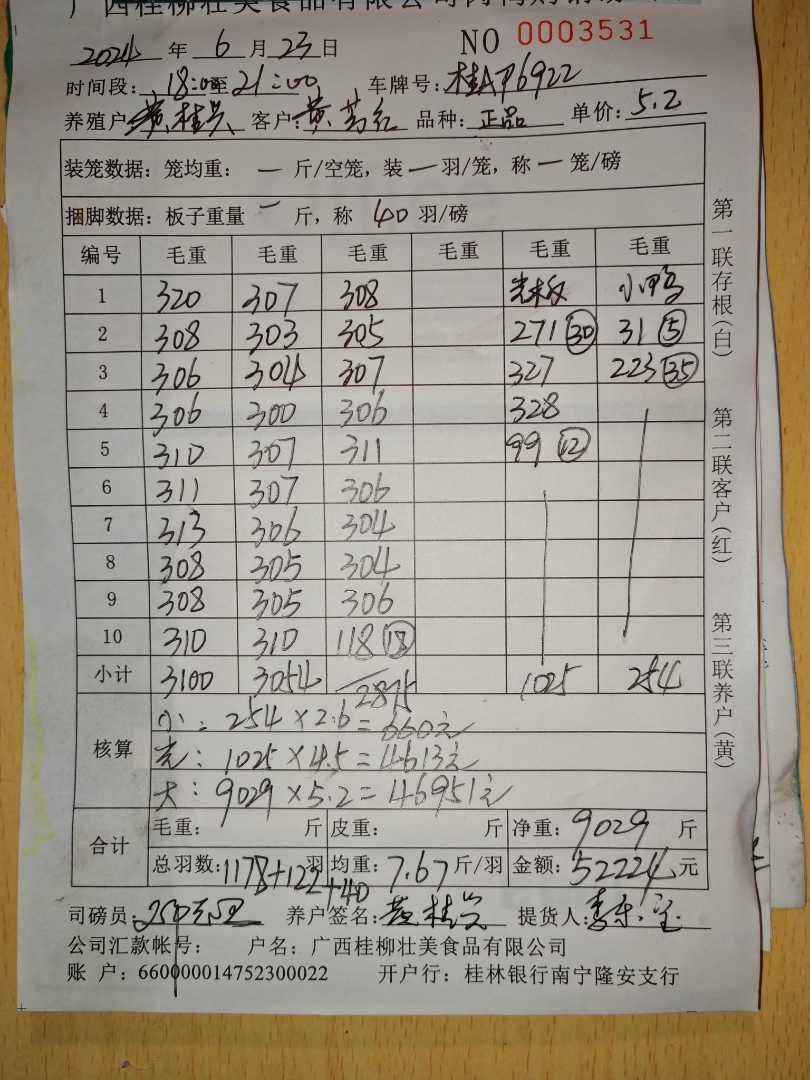 广西桂柳壮美食品有限公司
2024 年 6 月 23 日 NO 0003531
时间段: 18:00至21:00 车牌号: 桂AP6922
养殖户: 黄桂兴 客户: 黄 红 品种: 正品 单价: 5.2
装笼数据: 笼均重: 一 斤/空笼, 装一羽/笼, 称一笼/磅
捆脚数据: 板子重量 一 斤, 称 40 羽/磅
编号 毛重 毛重 毛重 毛重 毛重
1 320 307 308 光板 小鸭
2 308 303 305 271 (30) 31 (5)
3 306 304 307 327 223 (35)
4 306 300 306 328
5 310 307 311 99 (12)
6 311 307 306
7 313 306 304
8 308 305 304
9 308 305 306
10 310 310 118 (18)
小计 3100 3054 2875 1025 254
核算 小: 254×2.6=660元
光: 1025×4.5=4613元
大: 9029×5.2=46951元
合计 毛重: 斤 皮重: 斤 净重: 9029 斤
总羽数: 1178+122+40 羽 均重: 7.67 斤/羽 金额: 52224 元
司磅员: 养户签名: 黄桂兴 提货人:
公司汇款帐号: 户名: 广西桂柳壮美食品有限公司
账 户: 660000014752300022 开户行: 桂林银行南宁隆安支行
第一联存根(白) 第二联客户(红) 第三联养户(黄)